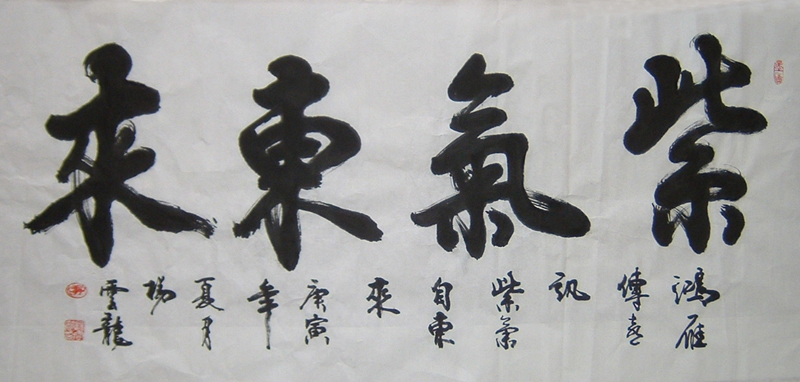 紫氣東來
鴻雁
傳喜
訊
紫氣
自東
來
庚寅
年
夏月
楊
雲龍